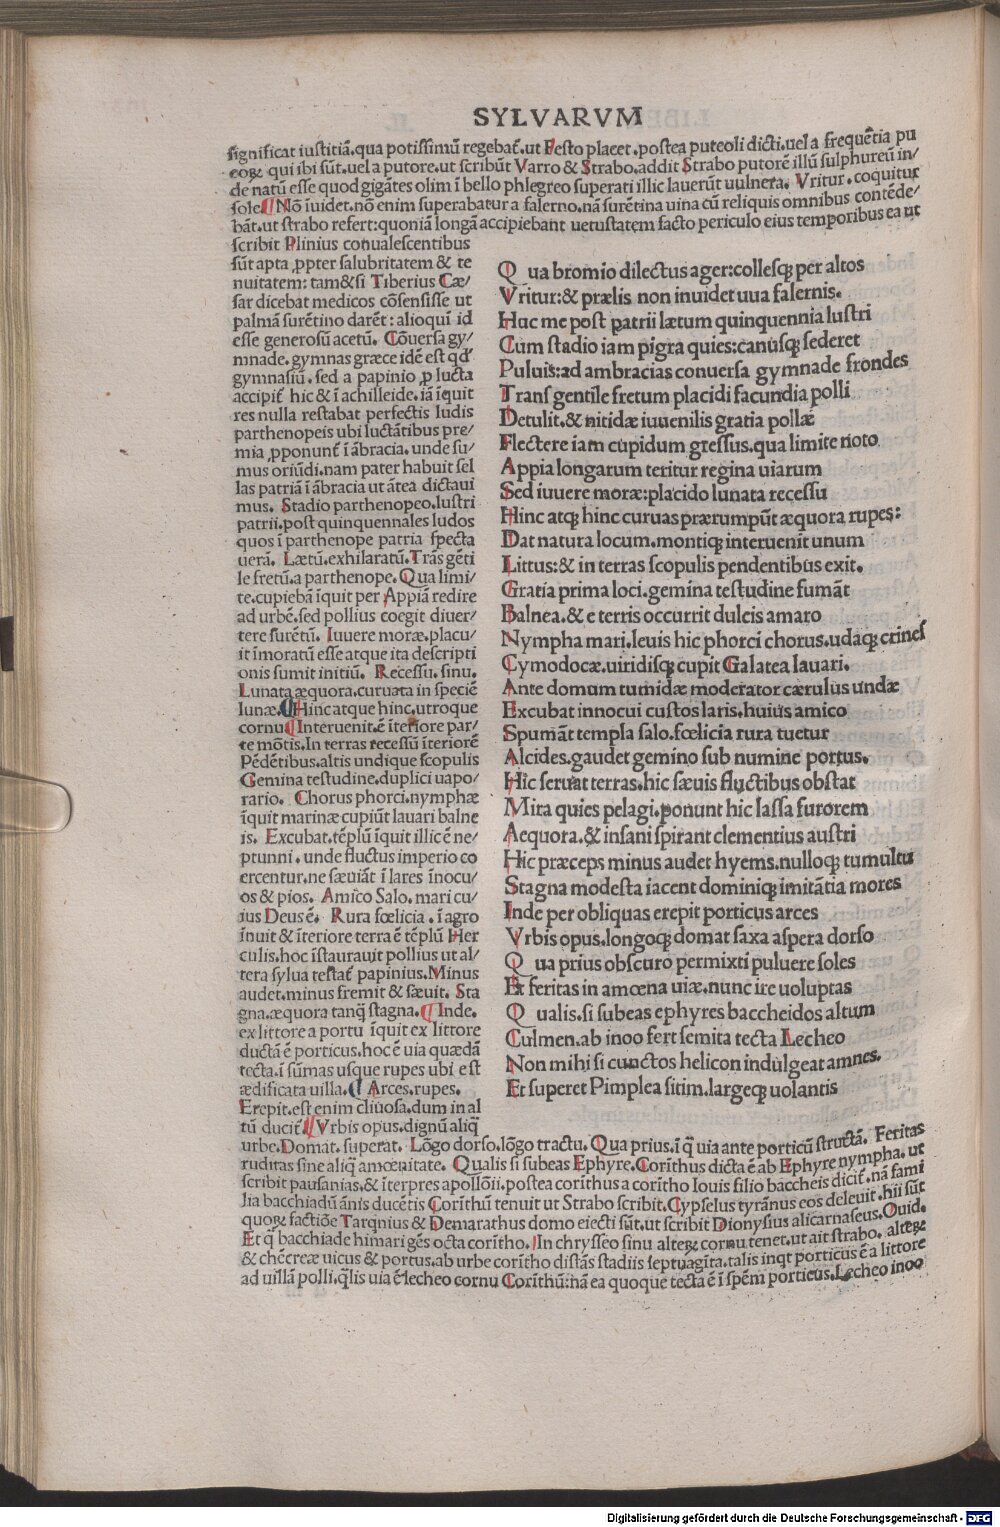 SYLVARVM
significat iustitiã.qua potissimũ regebat̃.ut Festo placet.postea puteoli dicti.uel a frequẽtia pu
eoꝝ qui ibi sũt.uel a putore.ut scribũt Varro & Strabo.addit Strabo putorẽ illũ sulphureũ in/
de natũ esse quod gigãtes olim ĩ bello phlegreo superati illic lauerũt uulnera. Vritur.coquitur
sole.¶Nõ ĩuidet.nõ enim superabatur a falerno.nã surẽtina uina cũ reliquis omnibus contẽde/
bãt.ut strabo refert:quoniã longã accipiebant uetustatem facto periculo eius temporibus ea ut
scribit Plinius conualescentibus
sũt apta ꝓpter salubritatem & te
nuitatem: tam&si Tiberius Cæ/
sar dicebat medicos cõsensisse ut
palmã surẽtino darẽt: alioqui id
esse generosũ acetũ. Cõuersa gy/
mnade.gymnas græce idẽ est qđ
gymnasiũ.sed a papinio ꝓ lucta
accipit̃ hic & ĩ achilleide.iã ĩquit
res nulla restabat perfectis ludis
parthenopeis ubi luctãtibus pre/
mia ꝓponunt̃ ĩ ãbracia.unde su/
mus oriũdi.nam pater habuit sel
las patriã ĩ ãbracia ut ãtea dictaui
mus. Stadio parthenopeo.lustri
patrii.post quinquennales ludos
quos ĩ parthenope patria specta
uerã. Lætũ.exhilaratũ.Trãs gẽti
le fretũ.a parthenope.Qua limi/
te.cupiebã ĩquit per Appiã redire
ad urbẽ.sed pollius coegit diuer/
tere surẽtũ. Iuuere moræ.placu/
it ĩmoratũ esse atque ita descripti
onis sumit initiũ. Recessu.sinu.
Lunata æquora.curuata in speciẽ
lunæ.¶Hinc atque hinc.utroque
cornu¶Interuenit.ẽ ĩteriore par/
te mõtis.In terras recessũ ĩteriorẽ
Pẽdẽtibus.altis undique scopulis
Gemina testudine.duplici uapo/
rario. Chorus phorci.nymphæ
ĩquit marinæ cupiũt lauari balne
is. Excubat.tẽplũ ĩquit illic ẽ ne/
ptunni.unde fluctus imperio co
ercentur.ne sæuiãt ĩ lares ĩnocu/
os & pios. Amico Salo.mari cu/
ius Deus ẽ. Rura fœlicia.ĩ agro
ĩnuit & ĩteriore terra ẽ tẽplũ Her
culis.hoc ĩstaurauit pollius ut al/
tera sylua testat̃ papinius.Minus
audet.minus fremit & sæuit. Sta
gna.æquora tanq̃ stagna.¶Inde.
ex littore a portu ĩquit ex littore
ductã ẽ porticus.hoc ẽ uia quædã
tecta.ĩ sũmas usque rupes ubi est
ædificata uilla.¶ Arces.rupes.
Erepit.est enim cliuosa.dum in al
tũ ducit̃.¶Vrbis opus.dignũ aliq̃
Q ua bromio dilectus ager:collesq; per altos
Vritur:& prælis non inuidet uua falernis.
Huc me post patrii lætum quinquennia lustri
Cum stadio iam pigra quies:canusq; sederet
Puluis:ad ambracias conuersa gymnade frondes
Trans gentile fretum placidi facundia polli
Detulit.& nitidæ iuuenilis gratia pollæ
Flectere iam cupidum gressus.qua limite noto
Appia longarum teritur regina uiarum
Sed iuuere moræ:placido lunata recessu
Hinc atq; hinc curuas prærumpũt æquora rupes:
Dat natura locum.montiq; interuenit unum
Littus:& in terras scopulis pendentibus exit.
Gratia prima loci.gemina testudine fumãt
Balnea.& e terris occurrit dulcis amaro
Nympha mari.leuis hic phorci chorus.udaq; crines
Cymodocæ.uiridisq; cupit Galatea lauari.
Ante domum tumidæ moderator cærulus undæ
Excubat innocui custos laris.huius amico
Spumãt templa salo.fœlicia rura tuetur
Alcides.gaudet gemino sub numine portus.
Hic seruat terras.hic sæuis fluctibus obstat
Mira quies pelagi.ponunt hic lassa furorem
Aequora.& insani spirant clementius austri
Hic præceps minus audet hyems.nulloq; tumultu
Stagna modesta iacent dominiq; imitãtia mores
Inde per obliquas erepit porticus arces
Vrbis opus.longoq; domat saxa aspera dorso
Q ua prius obscuro permixti puluere soles
Et feritas in amœna uiæ.nunc ire uoluptas
Q ualis.si subeas ephyres baccheidos altum
Culmen.ab inoo fert semita tecta Lecheo
Non mihi si cunctos helicon indulgeat amnes.
Et superet Pimplea sitim.largeq; uolantis
urbe.Domat.superat. Lõgo dorso.lõgo tractu. Qua prius.ĩ q̃ uia ante porticũ structã. Feritas
ruditas sine aliq̃ amœnitate. Qualis si subeas Ephyre.Corĩthus dicta ẽ ab Ephyre nympha.ut
scribit pausanias.& ĩterpres apollõii.postea corĩthus a corĩtho Iouis filio baccheis dicit̃.nã fami
lia bacchiadũ ãnis ducẽtis Corĩthũ tenuit ut Strabo scribit.Cypselus tyrãnus eos deleuit.hii sũt
quoꝝ factiõe Tarqnius & Demarathus domo eiecti sũt.ut scribit Dionysius alicarnaseus.Ouid.
Et q̃ bacchiade himari gẽs octa corĩtho. In chrysseo sinu alteꝝ cornu tenet.ut ait strabo. alteꝝ
& chẽcreæ uicus & portus.ab urbe corĩtho distãs stadiis septuagĩta.talis inqt porticus ẽ a littore
ad uillã polli.q̃lis uia ẽ lecheo cornu Corĩthũ:nã ea quoque tecta ẽ ĩ spẽm porticus.Lecheo inoo
Digitalisierung gefördert durch die Deutsche Forschungsgemeinschaft - DFG